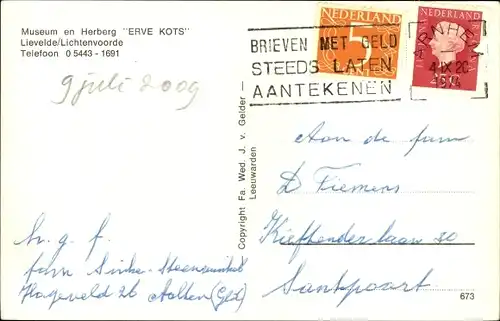 Museum en Herberg "ERVE KOTS"
Lievelde/Lichtenvoorde
Telefoon 0 5443 - 1691
9 juli 2009
NEDERLAND
5
NEDERLAND
BRIEVEN MET GELD
STEEDS LATEN
AANTEKENEN
ARNHEM
1974
Copyright Fa. Wed. J. v. Gelder - Leeuwarden
Aan de fam
D Fiemens
30
Santpoort
m. g. f.
fam Sinke-
Hageveld 26 Aalten (Gld)
673